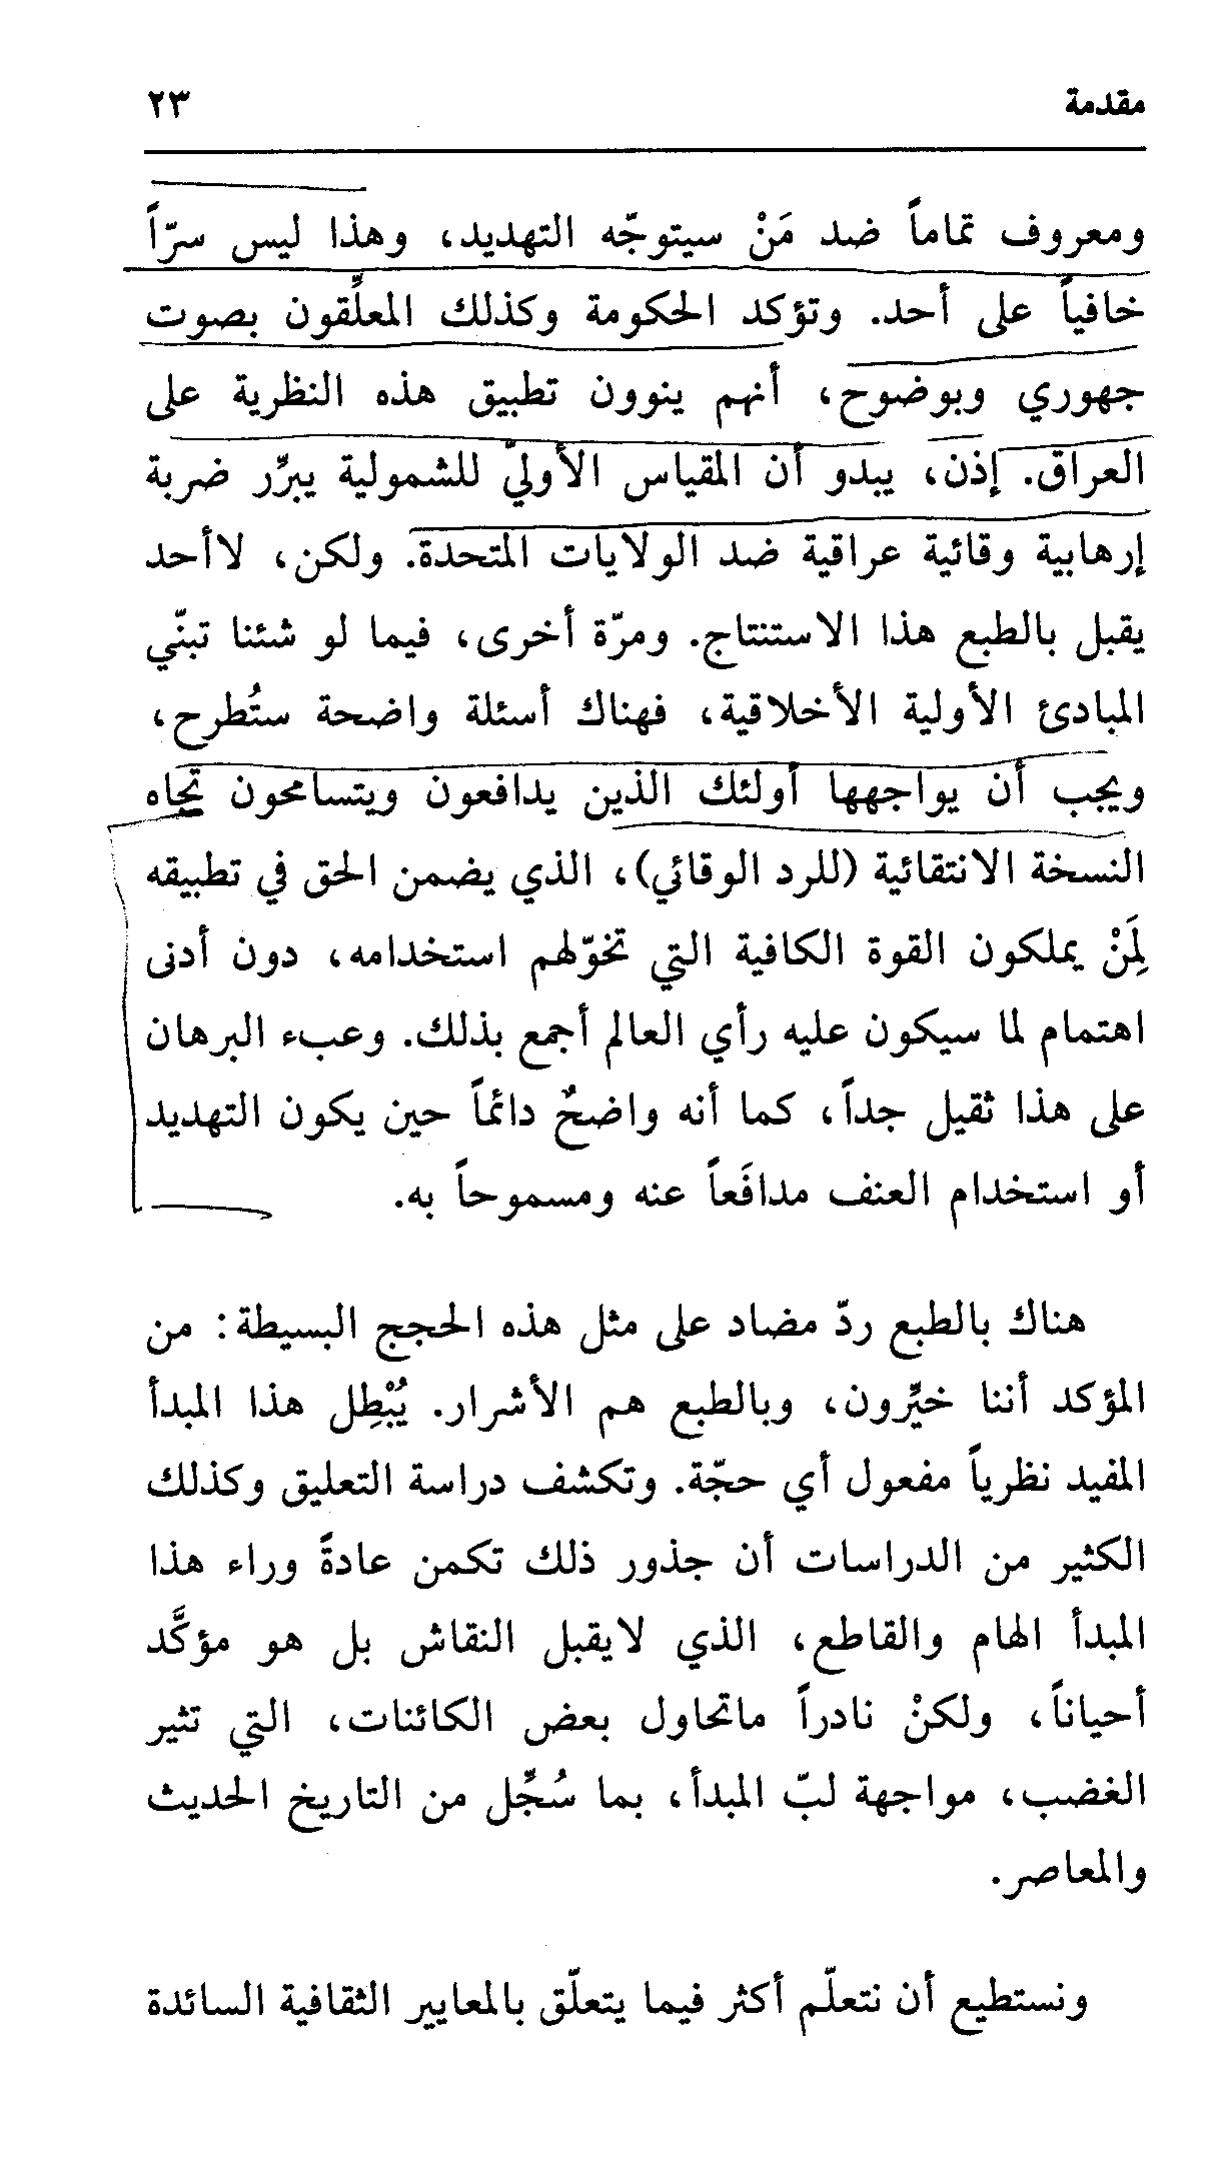 مقدمة ٢٣
ومعروف تماماً ضد مَنْ سيتوجّه التهديد، وهذا ليس سرّاً
خافياً على أحد. وتؤكد الحكومة وكذلك المعلِّقون بصوت
جهوري وبوضوح، أنهم ينوون تطبيق هذه النظرية على
العراق. إذن، يبدو أن المقياس الأوليّ للشمولية يبرِّر ضربة
إرهابية وقائية عراقية ضد الولايات المتحدة. ولكن، لاأحد
يقبل بالطبع هذا الاستنتاج. ومرّة أخرى، فيما لو شئنا تبنّي
المبادئ الأولية الأخلاقية، فهناك أسئلة واضحة ستُطرح،
ويجب أن يواجهها أولئك الذين يدافعون ويتسامحون تجاه
النسخة الانتقائية (للرد الوقائي)، الذي يضمن الحق في تطبيقه
لِمَنْ يملكون القوة الكافية التي تخوّلهم استخدامه، دون أدنى
اهتمام لما سيكون عليه رأي العالم أجمع بذلك. وعبء البرهان
على هذا ثقيل جداً، كما أنه واضحٌ دائماً حين يكون التهديد
أو استخدام العنف مدافَعاً عنه ومسموحاً به.
هناك بالطبع ردّ مضاد على مثل هذه الحجج البسيطة: من
المؤكد أننا خيِّرون، وبالطبع هم الأشرار. يُبْطِل هذا المبدأ
المفيد نظرياً مفعول أي حجّة. وتكشف دراسة التعليق وكذلك
الكثير من الدراسات أن جذور ذلك تكمن عادةً وراء هذا
المبدأ الهام والقاطع، الذي لايقبل النقاش بل هو مؤكَّد
أحياناً، ولكنْ نادراً ماتحاول بعض الكائنات، التي تثير
الغضب، مواجهة لبّ المبدأ، بما سُجِّل من التاريخ الحديث
والمعاصر.
ونستطيع أن نتعلّم أكثر فيما يتعلّق بالمعايير الثقافية السائدة